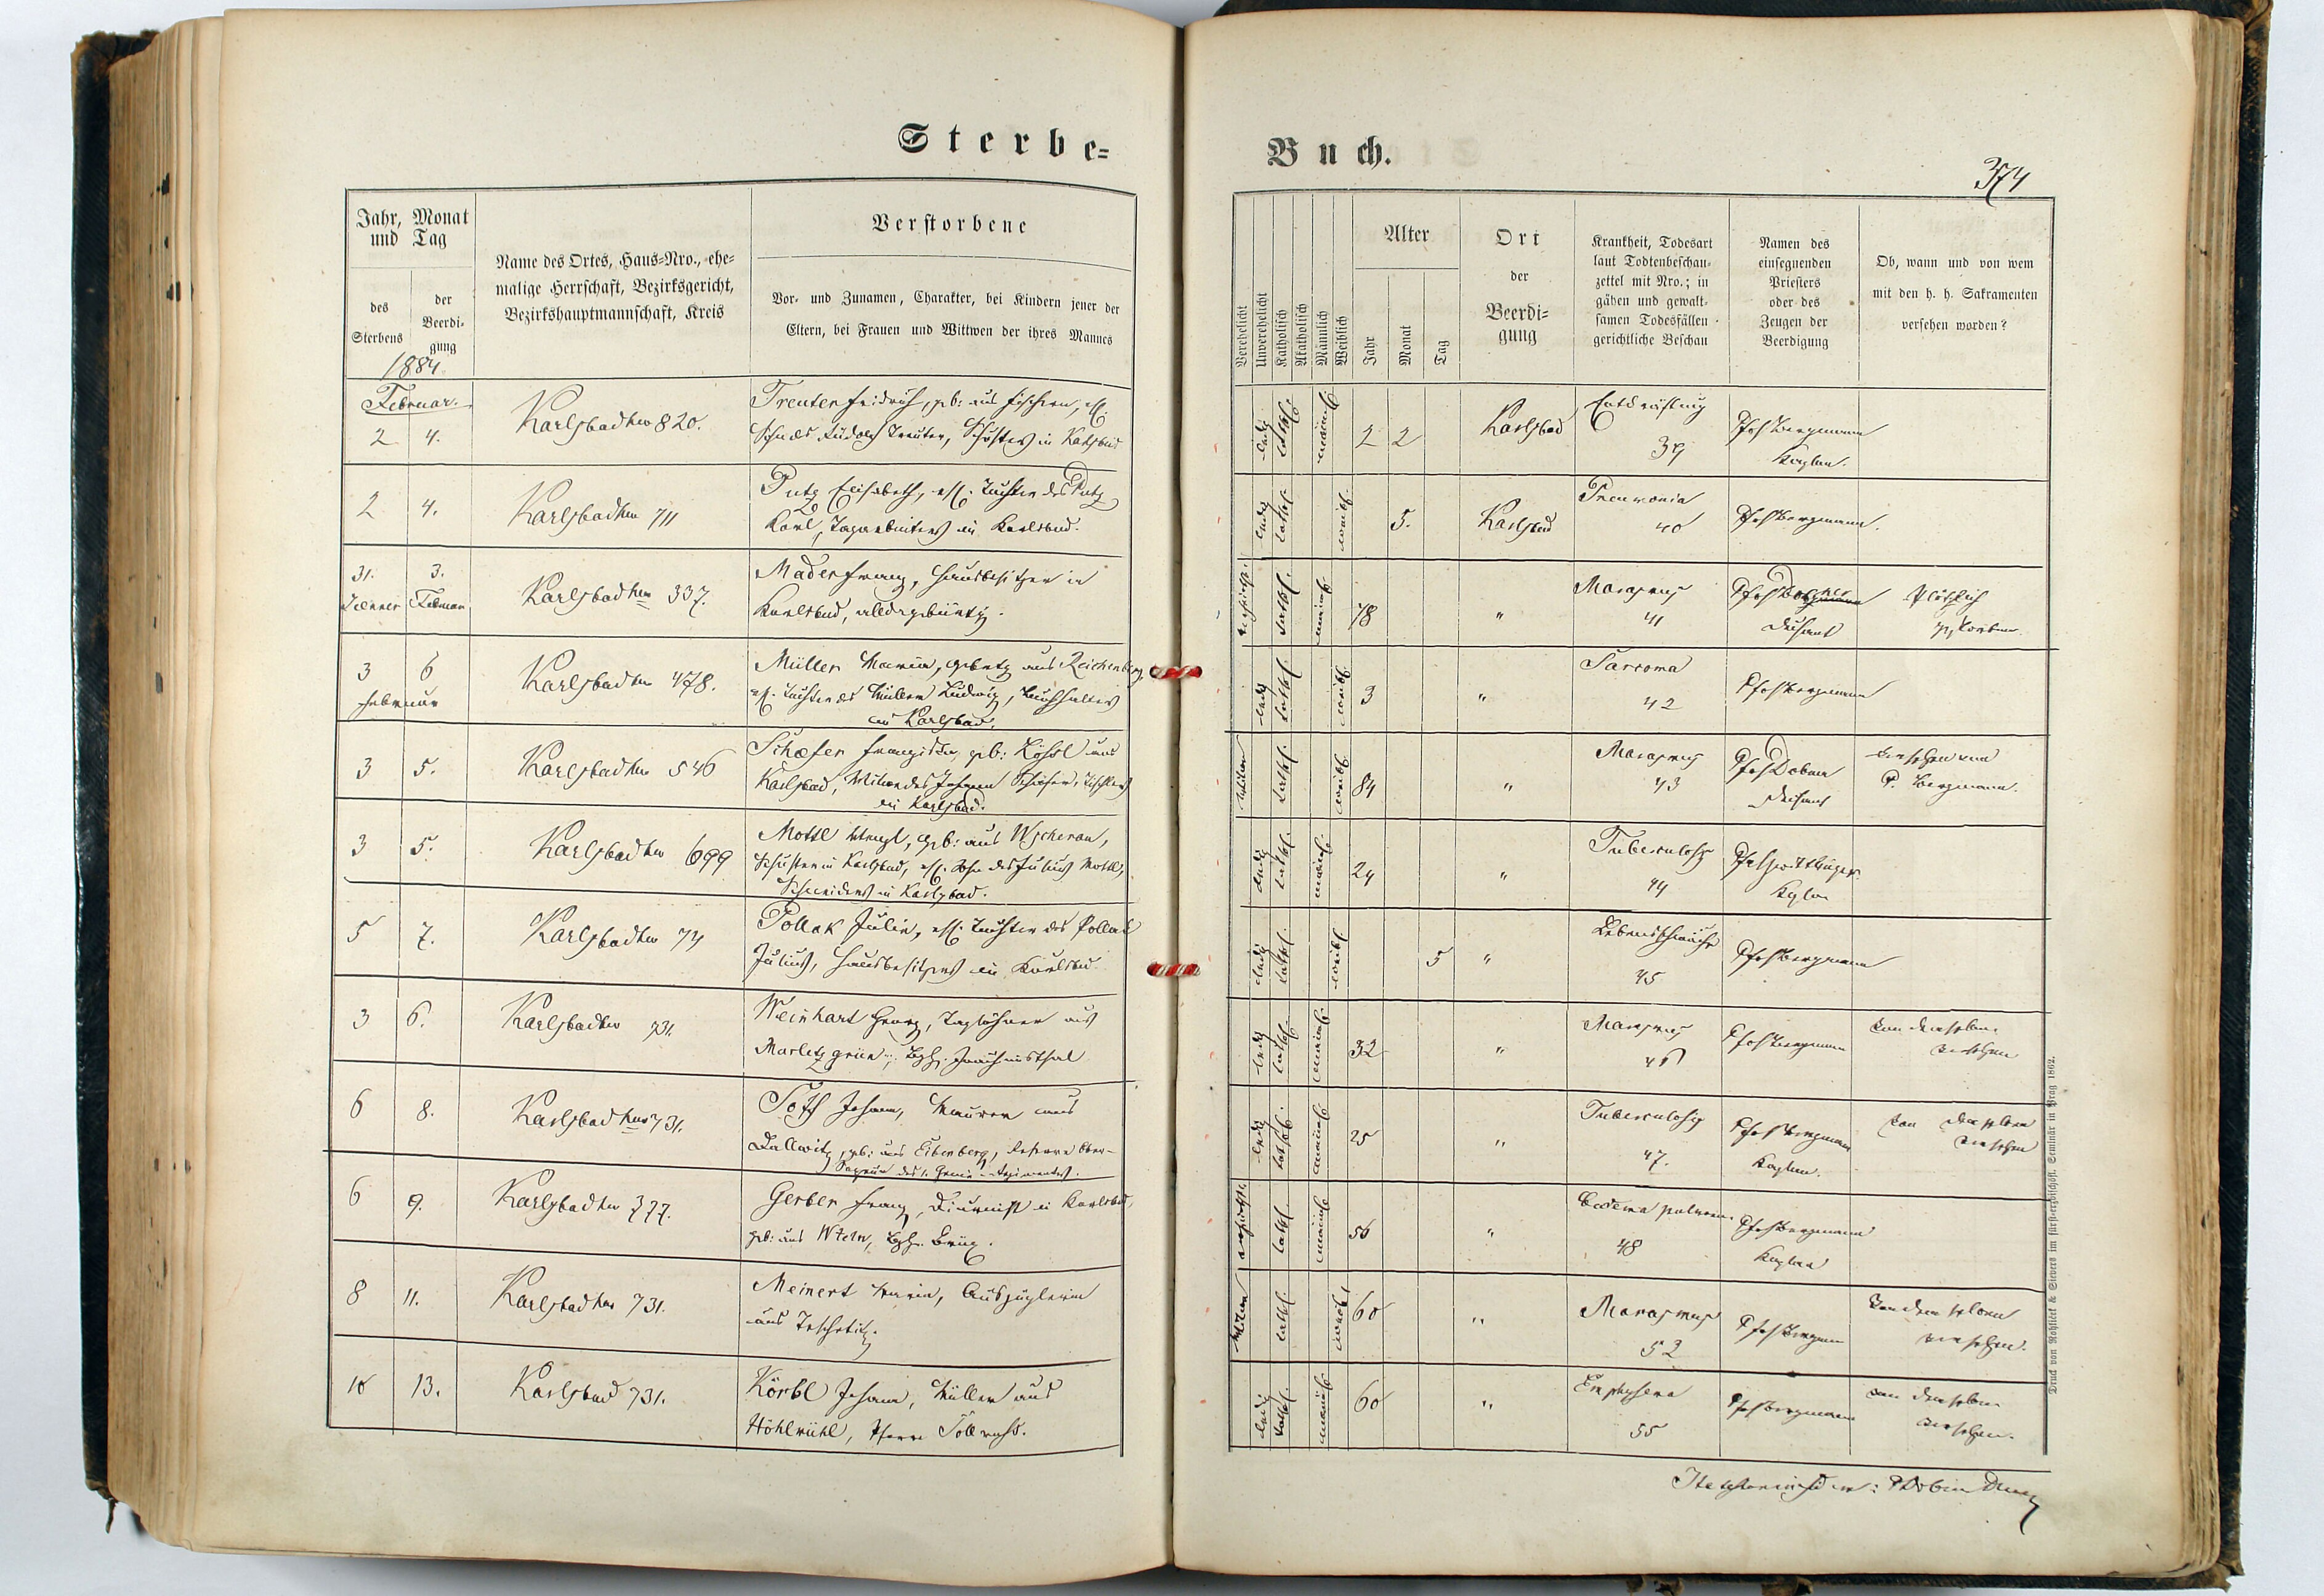 Sterbe=
Jahr, Monat und Tag
des Sterbens
der Beerdi= gung
Name des Ortes, Haus=Nro., ehe=
malige Herrschaft, Bezirksgericht,
Bezirkshauptmannschaft, Kreis
Verstorbene
Vor- und Zunamen, Charakter, bei Kindern jener der
Eltern, bei Frauen und Wittwen der ihres Mannes
1884
Februar.
2 4. Karlsbad 820.
Treuter Fridrich, geb: aus Fischern, ehl.
Sohn des Rudolf Treuter, Schuster in Karlsbad
2 4. Karlsbad 711
Putz Elisabeth, ehl. Tochter des Putz
Karl, Tagarbeiters in Karlsbad.
31. 3. Karlsbad 337.
Jänner Februar
Mader Franz, Hausbesitzer in
Karlsbad, allda gebürtig.
3 6 Karlsbad 478.
Februar
Müller Maria, aus Reichenberg,
ehl. Tochter des Müller Ludwig, Buchhalters
in Karlsbad.
3 5. Karlsbad 546
Schæfer Franziska, geb: Lößl aus
Karlsbad, Witwe des Johann Schäfer, Tischlers
in Karlsbad.
3 5. Karlsbad 699
Mottl Wenzl, geb: aus Wscherau,
Schuster in Karlsbad, ehl. Sohn des Julius Mottl,
Schneiders in Karlsbad.
5 7. Karlsbad 74
Pollak Julie, ehl. Tochter des Pollak
Julius, Hausbesitzers in Karlsbad.
3 6. Karlsbad 731.
Weinhart Georg, Taglöhner aus
Marletzgrün, Joachimsthal
6 8. Karlsbad 731.
Johann, Maurer aus
Dallwitz, geb: aus Eibenberg, Reserve Ober-
6 9. Karlsbad 377.
Gerber Franz, Diurnist in Karlsbad,
geb: aus Wteln, Brüx.
8 11. Karlsbad 731.
Meinert Maria, Auszüglerin
aus
10 13. Karlsbad 731.
Körbl Johann, Müller aus
Höhlmühl, Pfarre
Buch.
374
Verehelicht
Unverehelicht
Katholisch
Akatholisch
Männlich
Weiblich
Alter
Jahr
Monat
Tag
Ort
der
Beerdi=
gung
Krankheit, Todesart
laut Todtenbeschau-
zettel mit Nro.; in
gähen und gewalt-
samen Todesfällen
gerichtliche Beschau
Namen des
einsegnenden
Priesters
oder des
Zeugen der
Beerdigung
Ob, wann und von wem
mit den h. h. Sakramenten
versehen worden?
ledig kathol. männl. 2 2 Karlsbad Entkräftung
39
Bergmann
Kaplan.
ledig kathol. weibl. 5. Karlsbad Pneumonia
40
Bergmann
kathol. männl. 78 " Marasmus
41
Dechant
Plötzlich
gestorben
ledig kathol. weibl. 3 " Sarcoma
42
Bergmann
Witwe kathol. weibl. 84 " Marasmus
43
Dechant
versehen von
P. Bergmann.
ledig kathol. männl. 24 " Tuberculosis
44
Kaplan
ledig kathol. weibl. 5 " Lebensschwäche
45
Bergmann
ledig kathol. männl. 32 " Marasmus
46
Bergmann
von demselben
versehen
ledig kathol. männl. 25 " Tuberculosis
47.
Bergmann
Kaplan.
von demselben
versehen
kathol. männl. 56 " Oedema pulmon.
48
Bergmann
Kaplan
Witwe kathol. weibl. 60 " Marasmus
52
Bergmann
von demselben
versehen.
ledig kathol. männl. 60 " Emphysema
55
Bergmann
von demselben
versehen.
Druck von Rohliček & Sievers im fürst-erzbischöfl. Seminär in Prag 1862.